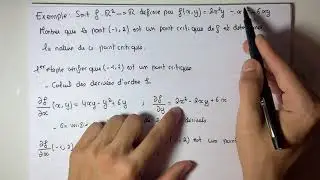 Exemple: Soit f: ℝ² → ℝ définie par f(x,y) = 2x²y - x 6xy
Montrer que le point (-1, 2) est un point critique de f et déterminer
la nature de ce point critique.
1ère étape vérifier que (-1, 2) est un point critique
- Calcul des dérivées d'ordre 1.
∂f/∂x (x,y) = 4xy - y² + 6y ; ∂f/∂y = 2x² - 2xy + 6x
- On
∂f/∂x (-1, 2) (-1, 2) est un point